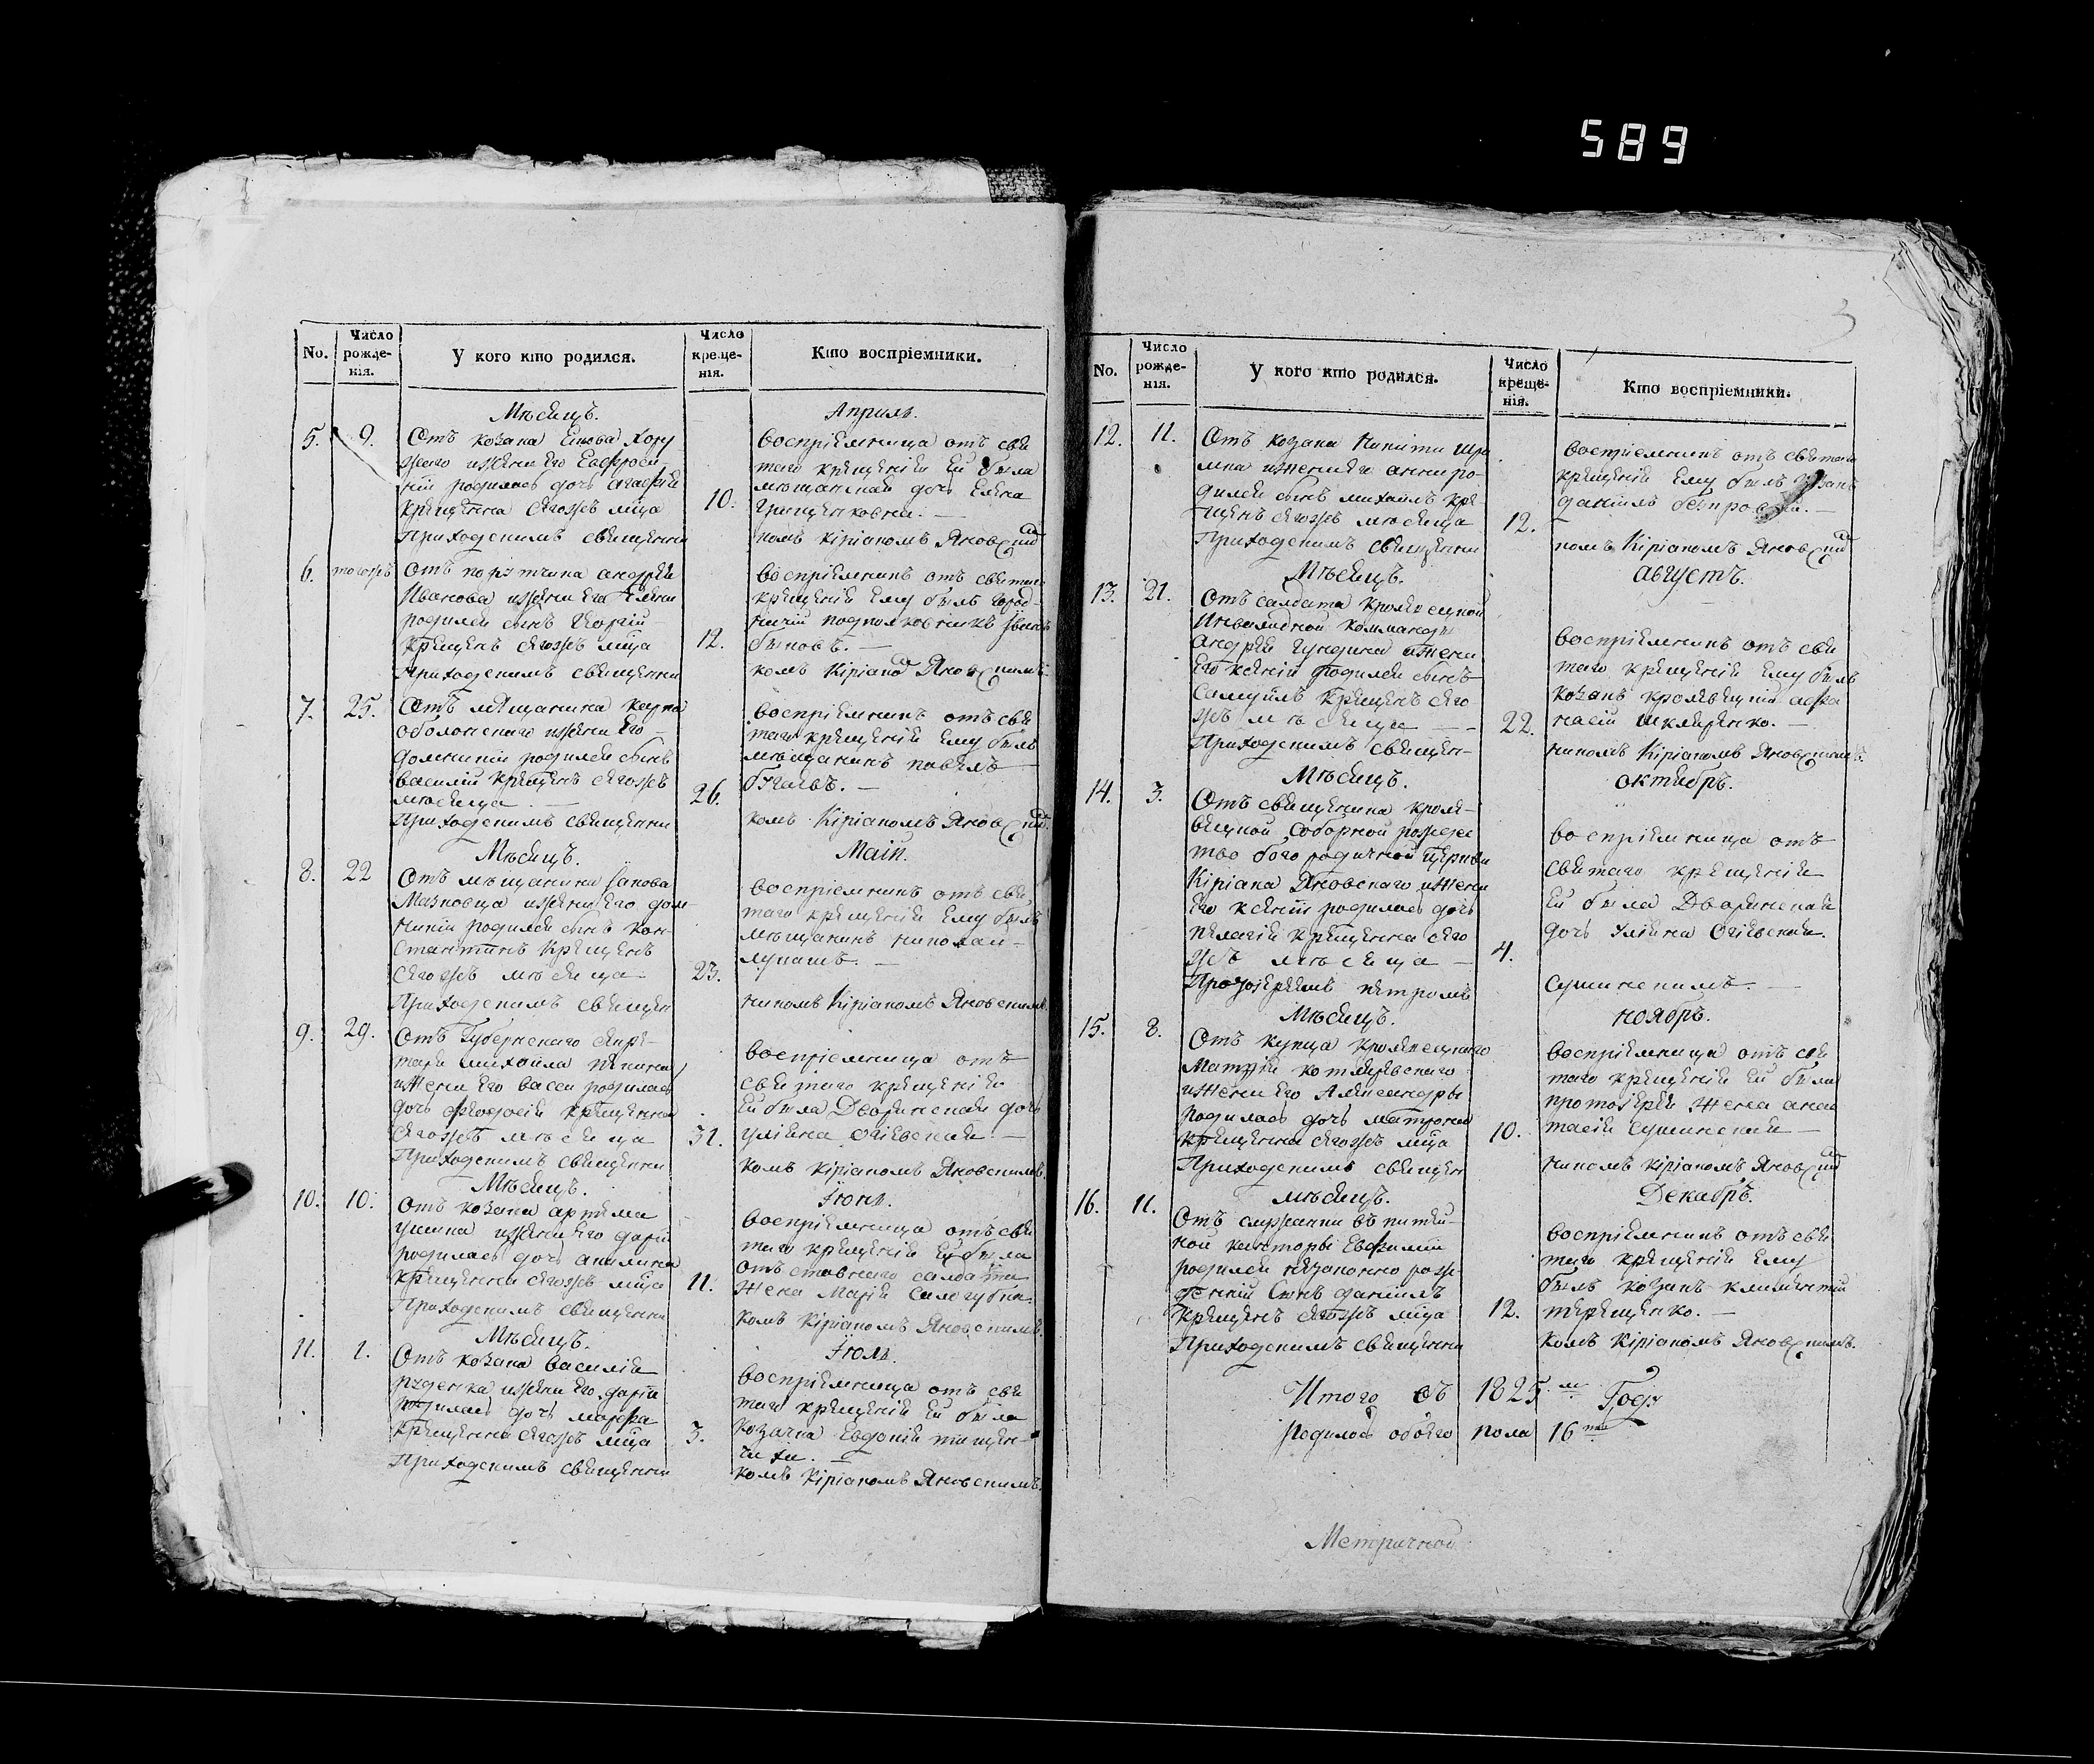 589
3
No.
Число рожденія.
У кого кто родился.
Число крещенія.
Кто воспріемники.
Мѣсяцъ.
Априль.
5.
9.
Отъ козака
жаго изжени его Евфроси
ніи родилась дочь Агафія
крещенна сегожъ мца
10.
Приходскимъ священни
воспріемница отъ свя
таго крещенія ей была
мѣщанская дочь Елена
Грищенкова. —
комъ Кіріакомъ Яновским
6.
тогожъ
Отъ порутчика андрея
Иванова изжени его Елени
родился сынъ Георгій
крещенъ сегожъ мца
12.
Приходскимъ священни
воспріемникъ отъ святаго
крещенія ему былъ город-
ничій подполковникъ
комъ Кіріако Яновскимъ
7.
25.
Отъ мещанина карпа
оболонскаго изжени его
домникіи родился сынъ
василій крещенъ сегожъ
мѣсяца —
26.
Приходскимъ священни
воспріемникъ отъ свя
таго крещенія ему былъ
мѣщанинъ павелъ
бугаевъ. —
комъ Кіріакомъ Яновским
Мѣсяцъ.
Маій.
8.
22
Отъ мѣщанина іакова
Мазновца изжени его дом
никіи родился сынъ кон-
стантинъ крещенъ
сегожъ мѣсяца
23.
Приходскимъ священ
воспріемникъ отъ свя
таго крещенія ему былъ
мѣщанинъ николай
лупашъ. —
никомъ Кіріакомъ Яновскимъ
9.
29.
Отъ Губернскаго секре-
таря михаила
изжени его васси родилась
дочь феодосія крещенна
сегожъ мѣсяца
31.
Приходскимъ священни
воспріемница отъ
святаго крещенія
ей была Дворянская дочь
уліяна Огіевская —
комъ Кіріакомъ Яновскимъ
Мѣсяцъ.
Іюнь.
10.
10.
Отъ козака артема
изжени его даріи
родилась дочь акилина
крещенна сегожъ мца
11.
Приходскимъ священни
воспріемница отъ свя
таго крещенія ей была
отъставнаго салдата
жена Марія
комъ Кіріакомъ Яновскимъ
Мѣсяцъ.
Іюль.
11.
1.
Отъ козака василія
руденка изжени его даріи
родилась дочь марфа
крещенна сегожъ мца
3.
Приходскимъ священни
воспріемница отъ свя
таго крещенія ей была
козачка Евдокія тищен-
чиха. —
комъ Кіріакомъ Яновскимъ
No.
Число рожденія.
У кого кто родился.
Число крещенія.
Кто воспріемники.
12.
11.
Отъ козака никити
изжени его анни ро-
дился сынъ михаилъ кре-
щенъ сегожъ мѣсяца
12.
Приходскимъ священни
воспріемникъ отъ святаго
крещенія ему былъ козакъ
даніилъ
комъ Кіріакомъ Яновским
Мѣсяцъ.
Августъ.
13.
21.
Отъ салдата кролевецкой
Инвалидной комманды
андрея гундина изжени
его ксеніи родился сынъ
самуилъ крещенъ сего
жъ мѣсяца —
22.
Приходскимъ священ-
воспріемникъ отъ свя
таго крещенія ему былъ
козакъ кролевецкій афа
насій шкляренко. —
никомъ Кіріакомъ Яновскимъ.
Мѣсяцъ.
Октябрь.
14.
3.
Отъ священика кроле-
вецкой Соборной рождес
тво богородичной Церкви
Кіріака Яновскаго изжени
его ксеніи родилась дочь
пелагія крещенна сего
жъ мѣсяца —
4.
Протоіереемъ петромъ
воспріемница отъ
святаго крещенія
ей была Дворянская
дочь уліяна Огіевская.
сушинскимъ. —
Мѣсяцъ.
ноябрь.
15.
8.
Отъ купца кролевецкаго
Матфія котляревскаго
изжени его Александры
родилась дочь матрона
крещенна сегожъ мца
10.
Приходскимъ священ
воспріемница отъ свя
таго крещенія ей была
протоіерея жена анас
тасія сушинская —
никомъ Кіріакомъ Яновским
Мѣсяцъ.
Декабрь.
16.
11.
Отъ служанки въ питей-
ной канторы Евфиміи
родился незаконно рож-
денній Сынъ даніилъ
крещенъ сегожъ мца
12.
Приходскимъ священни
воспріемникъ отъ свя
таго крещенія ему
былъ козакъ климентій
терещенко. —
комъ Кіріакомъ Яновскимъ.
Итого въ 1825м Году
родилось обоего пола 16ть
Метричной